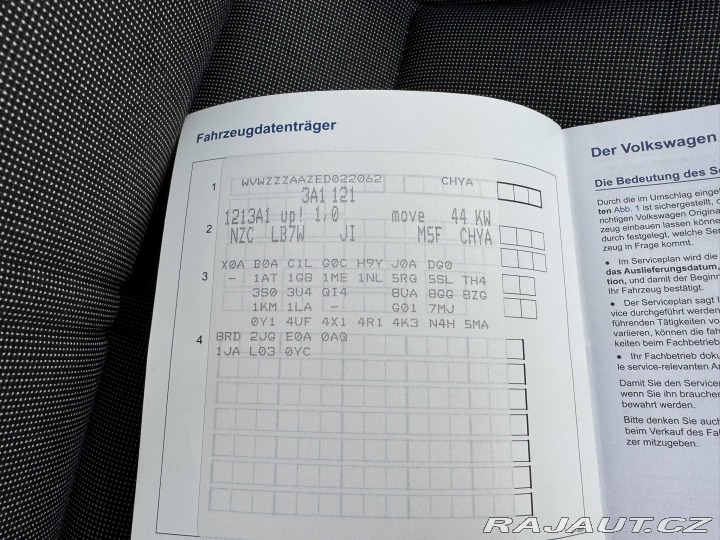 Fahrzeugdatenträger
1 WVWZZZAAZED022062 CHYA
3A1 121
1213A1 up! 1,0 move 44 KW
2 NZC LB7W JI M5F CHYA
X0A B0A C1L G0C H9Y J0A DG0
3 - 1AT 1G8 1ME 1NL 5RG 5SL TH4
3S0 3U4 QI4 8UA 8GG 8ZG
1KM 1LA - G01 7MJ
0Y1 4UF 4X1 4R1 4K3 N4H 5MA
4 8RD 2JG E0A 0AQ
1JA L03 0YC
Der Volkswagen
Die Bedeutung des
Durch die im Umschlag
ten Abb. 1 ist sichergestellt,
richtigen Volkswagen
zeug einbauen lassen
durch festgelegt, welche
zeug in Frage kommt.
• Im Serviceplan wird die
das Auslieferungsdatum,
tion, und damit der
Ihr Fahrzeug bestätigt.
• Der Serviceplan sagt
vice durchgeführt werden
führenden Tätigkeiten
variieren, können die
keiten beim Fachbetrieb
• Ihr Fachbetrieb
le service-relevanten
Damit Sie den
wenn Sie ihn
bewahrt werden.
Bitte denken Sie auch
beim Verkauf des
zer mitzugeben.
RAJAUT.CZ